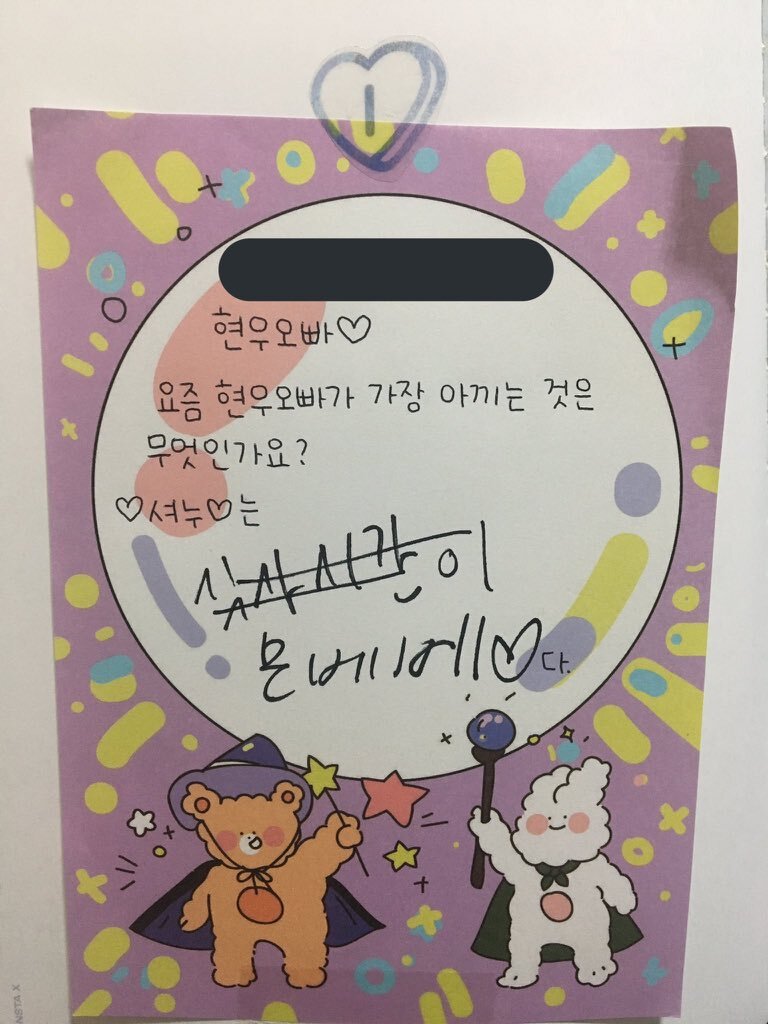 현우오빠♡
요즘 현우오빠가 가장 아끼는 것은
무엇인가요?
♡셔누♡는
식사시간이
몬베베♡다.
NSTA X